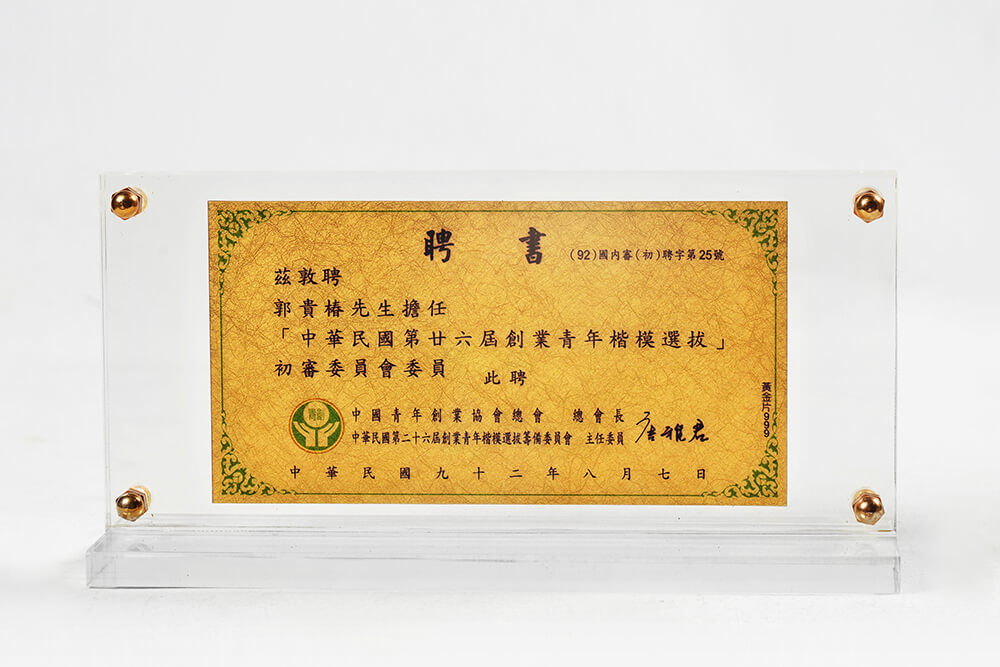 聘書
(92)國內審(初)聘字第25號
茲敦聘
郭貴椿先生擔任
「中華民國第廿六屆創業青年楷模選拔」
初審委員會委員
此聘
黃金片999
中國青年創業協會總會 總會長
中華民國第二十六屆創業青年楷模選拔籌備委員會 主任委員
中華民國九十二年八月七日